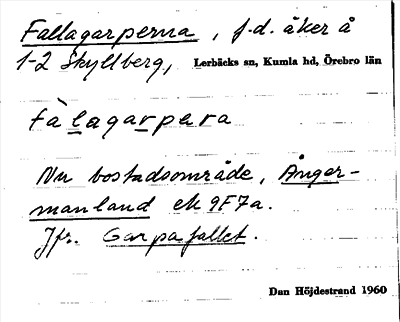 Fallagarperna, f.d. åker å
1-2 Skyllberg, Lerbäcks sn, Kumla hd, Örebro län
fàlagarpera
Nu bostadsområde, Ånger-
manland ek 9F7a.
Jfr. Garpafallet.
Dan Höjdestrand 1960